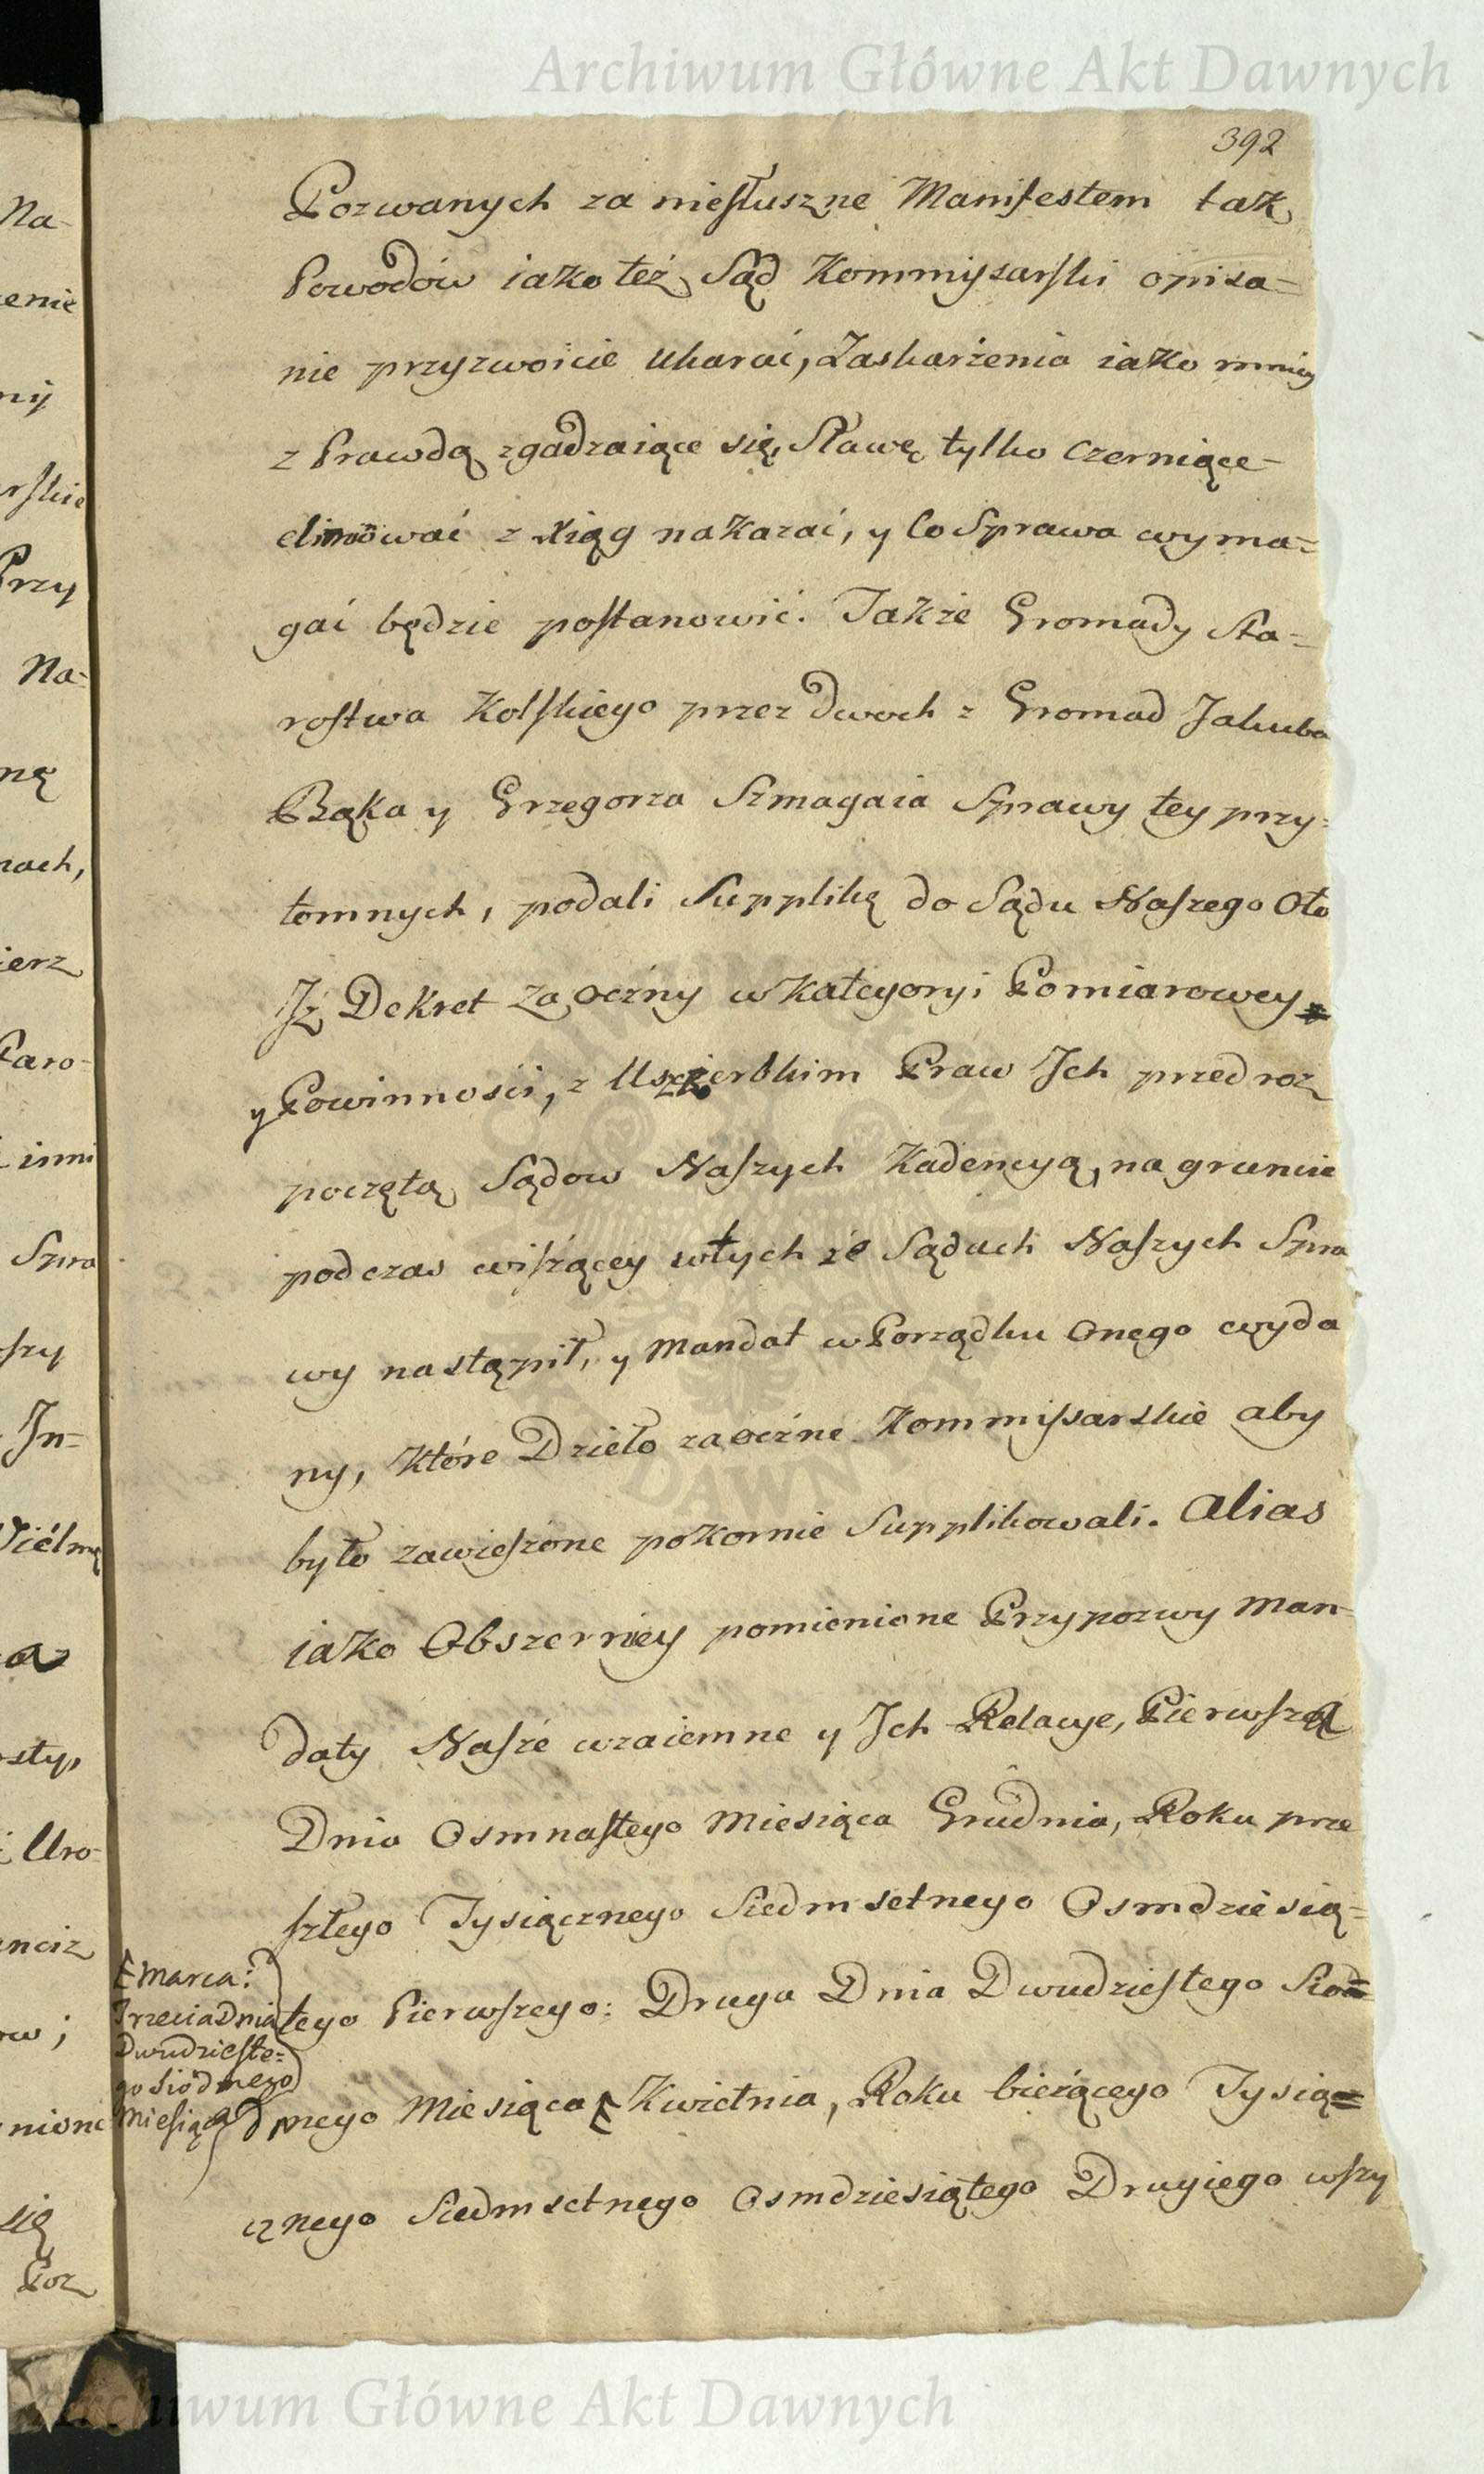 Archiwum Główne Akt Dawnych
392
Pozwanych za niesłuszne Manifestem tak
Powodów iako też Sąd Kommissarski opisa=
nie przyzwoicie ukarać, Zaskarżenia iako mniey
z Prawdą zgadzaiące się, Sławę tylko czerniące
eliminować z Xiąg nakazać, y Co Sprawa wyma=
gać będzie postanowić. Także Gromady Sta=
rostwa Kolskiego przez dwoch z Gromad Jakuba
Bąka y Grzegorza Szmagaia Sprawy tey przy=
tomnych, podali Supplikę do Sądu Naszego Oto
Iż Dekret Zaoczny w Kategoryi Pomiarowey
y Powinności, z Uszczerbkim Praw Ich przed roz
poczętą Sądow Naszych Kadencyą, na gruncie
podczas wiszącey w tych że Sądach Naszych Spra
wy nastąpił, y Mandat w Porządku onego wyda
ny, które Dzieło zaoczne Kommissarskie aby
było zawieszone pokornie Supplikowali. Alias
iako Obszerniey pomienione Przypozwy Man
daty Nasze wzaiemne y Ich Relacye, Pierwsza
Dnia Osmnastego Miesiąca Grudnia, Roku prze
szłego Tysiącznego Siedmsetnego Osmdziesią=
tego Pierwszego: Druga Dnia Dwudziestego Siod=
mego Miesiąca Kwietnia, Roku bieżącego Tysią=
cznego Siedmsetnego Osmdziesiątego Drugiego wszy
Marca:
Trzecia Dnia
Dwudzieste=
go Siódmego
Miesiąca
Na-
enie
ny
rskie
Przy
Na=
nę
rach,
ierz
Paro-
inni
Spra
szy
In=
Wielmę
a
stęp
Uro-
ncisz
ow;
nione
się
Poz
Archiwum Główne Akt Dawnych